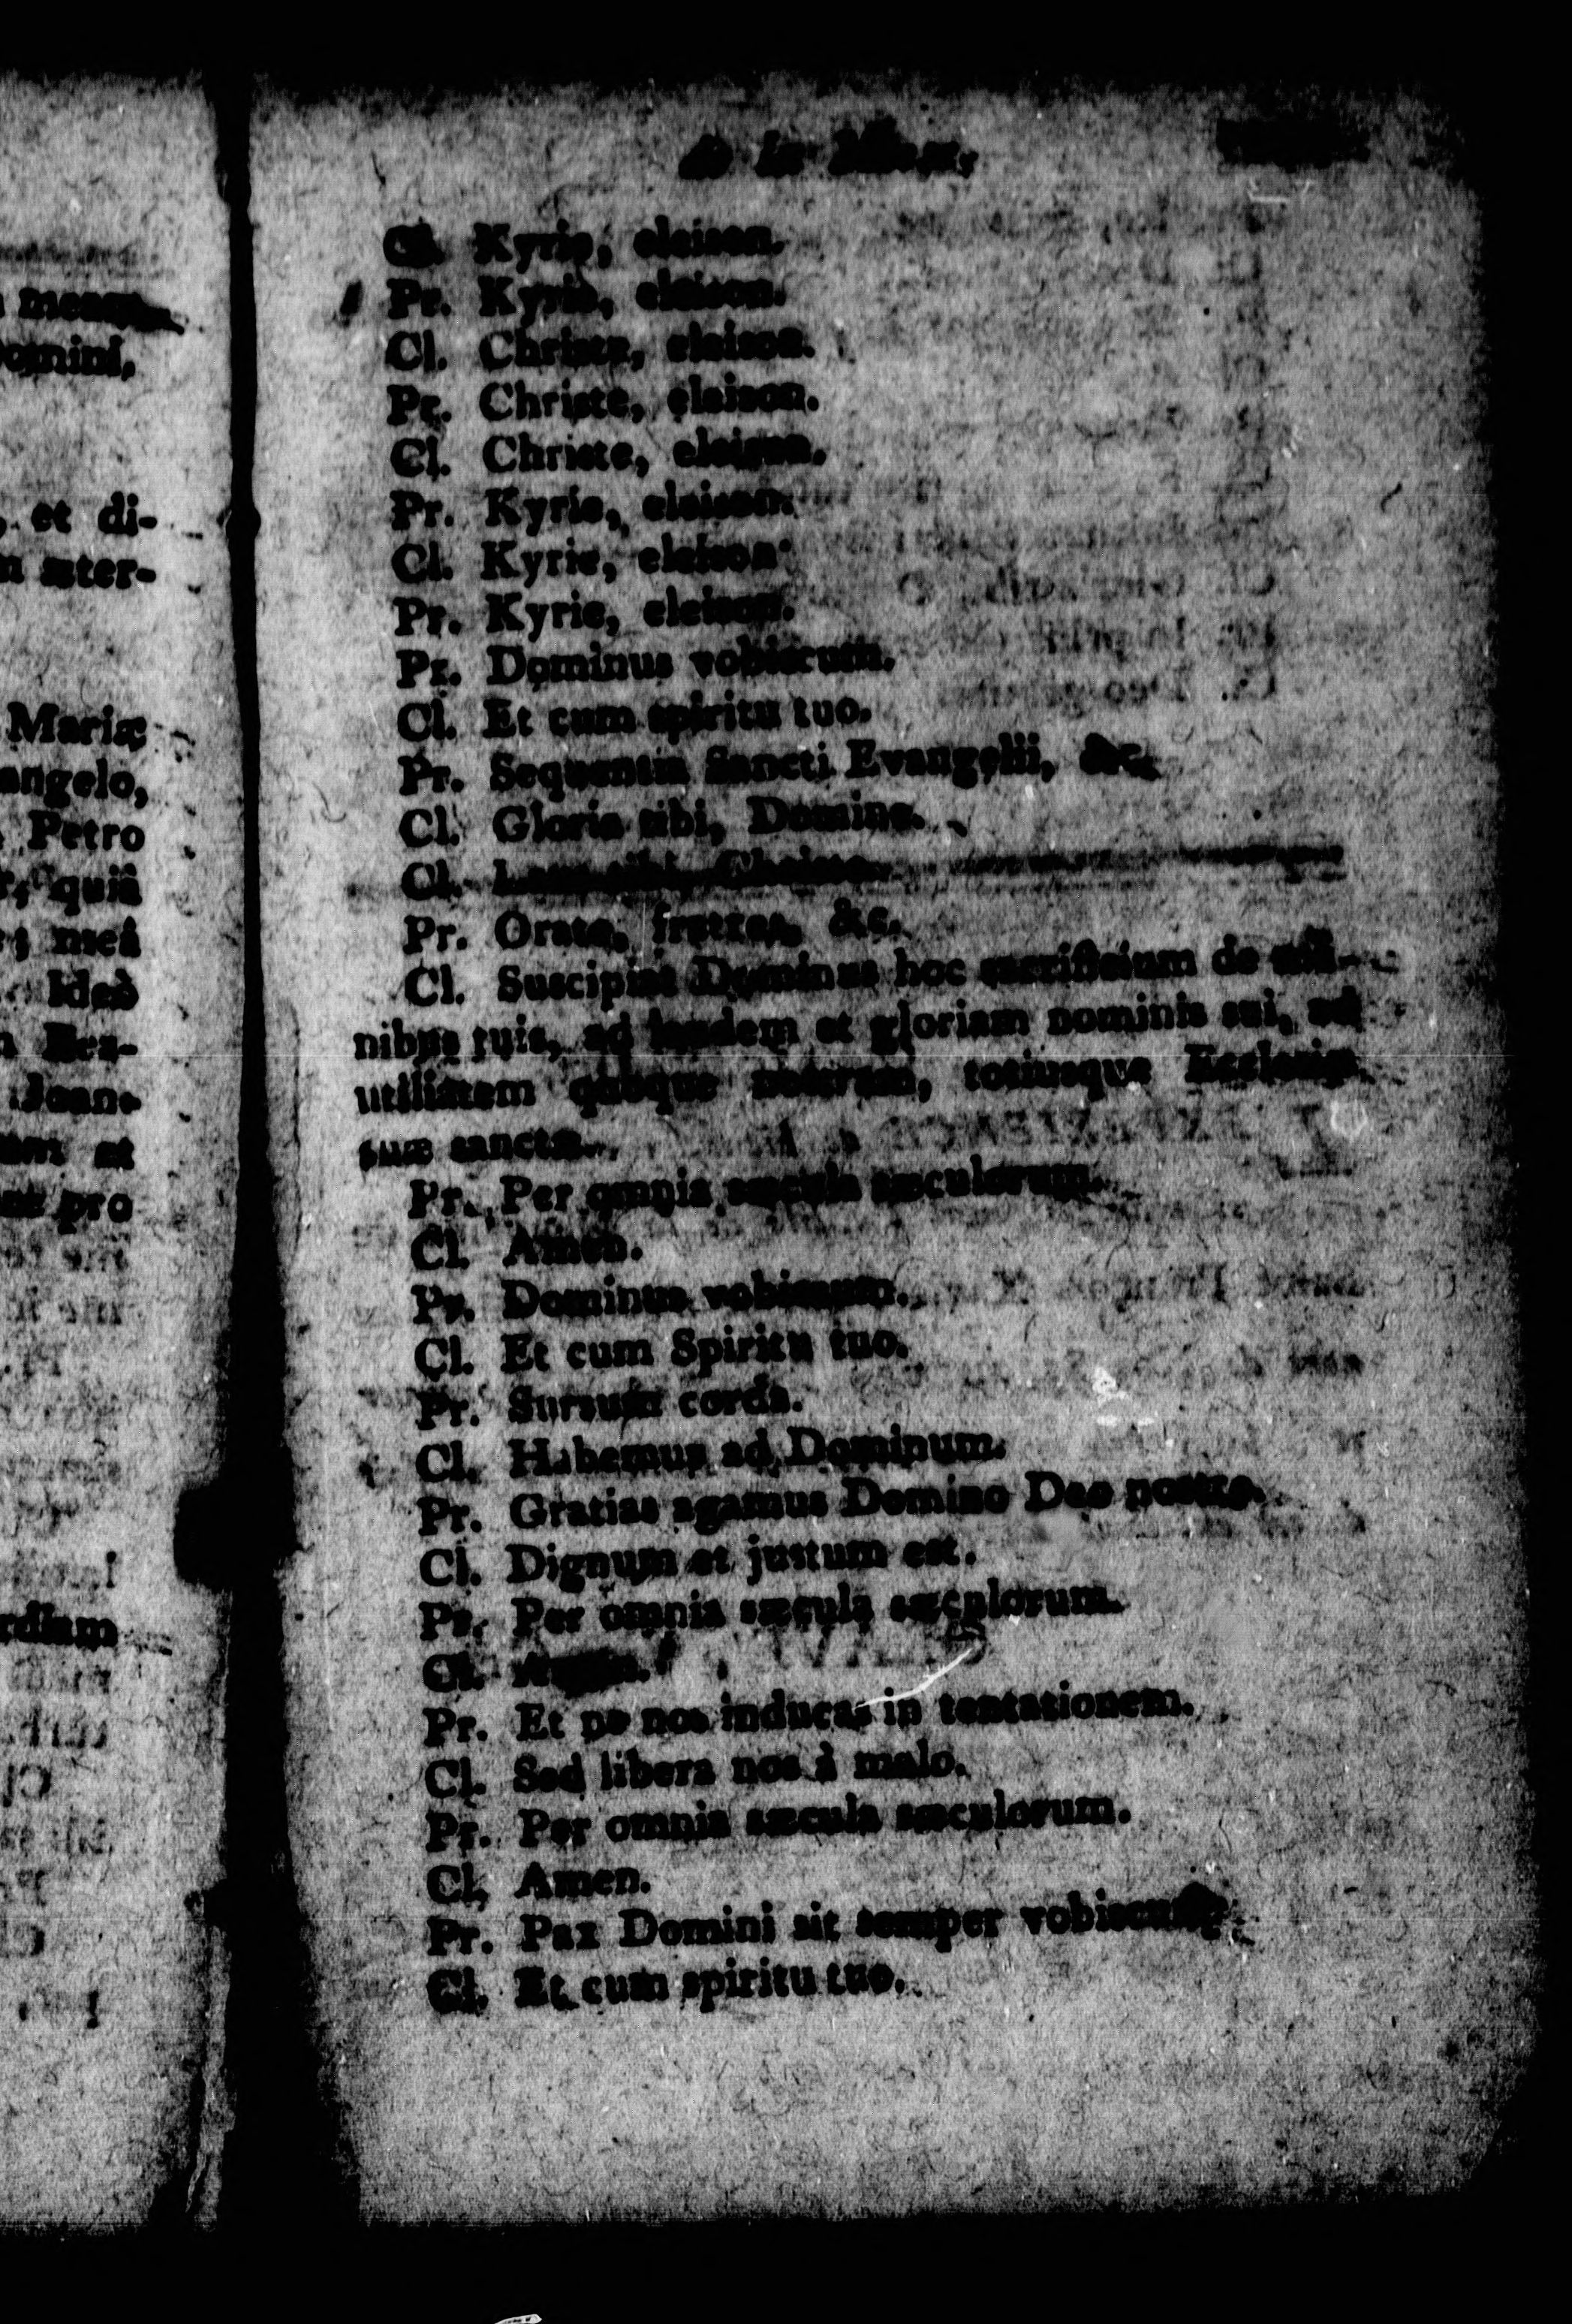 meam
Domini,
et di-
æter-
Mariæ
angelo,
Petro
quiâ
meâ
Ideò
Joan-
et
pro
de la Messe.
Cl. Kyrie, eleison.
Pr. Kyrie, eleison.
Cl. Christe, eleison.
Pr. Christe, eleison.
Cl. Christe, eleison.
Pr. Kyrie, eleison.
Cl. Kyrie, eleison.
Pr. Kyrie, eleison.
Pr. Dominus vobiscum.
Cl. Et cum spiritu tuo.
Pr. Sequentia Sancti Evangelii, &c.
Cl. Gloria tibi, Domine.
Cl. Laus tibi, Christe.
Pr. Orate, fratres, &c.
Cl. Suscipiat Dominus hoc sacrificium de ma-
nibus tuis, ad laudem et gloriam nominis sui, ad
utilitatem quoque nostram, totiusque Ecclesiæ
suæ sanctæ.
Pr. Per omnia sæcula sæculorum.
Cl. Amen.
Pr. Dominus vobiscum.
Cl. Et cum Spiritu tuo.
Pr. Sursum corda.
Cl. Habemus ad Dominum.
Pr. Gratias agamus Domino Deo nostro.
Cl. Dignum et justum est.
Pr. Per omnia sæcula sæculorum.
Cl. Amen.
Pr. Et ne nos inducas in tentationem.
Cl. Sed libera nos à malo.
Pr. Per omnia sæcula sæculorum.
Cl. Amen.
Pr. Pax Domini sit semper vobiscum.
Cl. Et cum spiritu tuo.